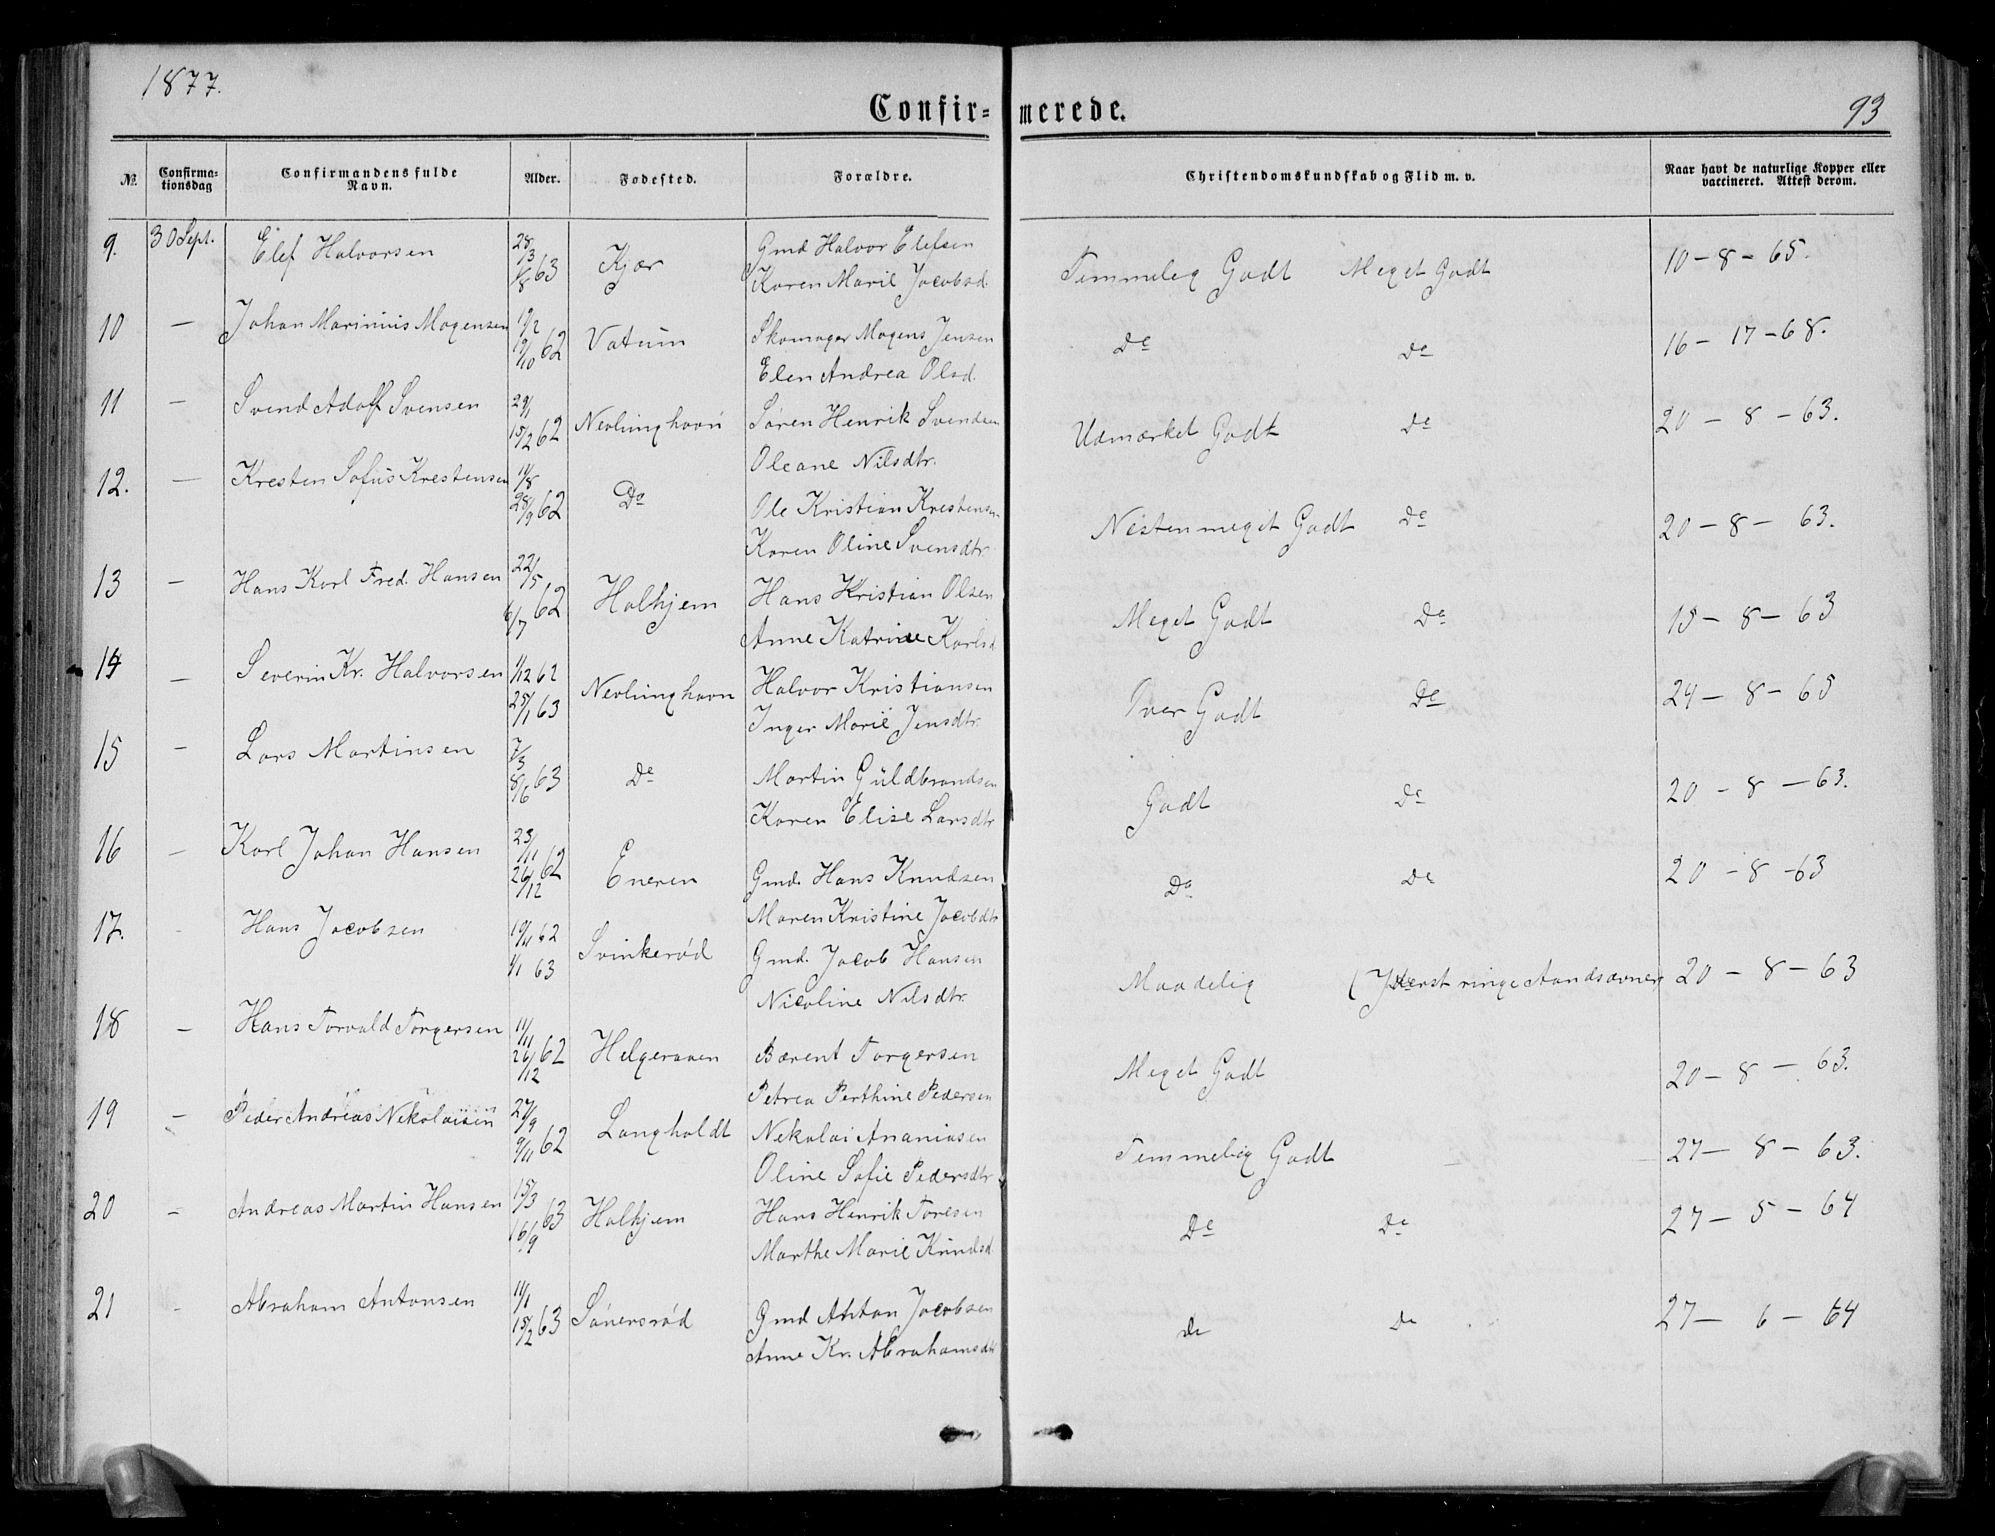 1877.
Confir= merede.
93
No.
Confirma-
tionsdag
Confirmandens fulde
Navn.
Alder.
Fødested.
Forældre.
Christendomskundskab og Flid m. v.
Naar havt de naturlige Kopper eller
vaccineret. Attest derom.
9. 30 Sept. Elef Halvorsen 28/3 1/8 63 Kjær Gmd Halvor Elefsen Temmelig Godt Meget Godt 10-8-65.
Karen Marie Jacobsd.
10 — Johan Marinius Mogensen 19/10 62 Vatum Skomager Mogens Jensen Do Do 16-17-68.
Elen Andrea Olsd.
11 — Svend Adolf Svensen 29/1 15/2 62 Nevlunghavn Søren Henrik Svendsen Udmærket Godt Do 20-8-63.
Oleane Nilsdtr.
12. — Kresten Sofus Krestensen 28/9 62 Do Ole Kristian Krestensen Nesten meget Godt Do 20-8-63.
Karen Oline Svensdtr
13 — Hans Karl Fred. Hansen 22/5 6/7 62 Halhjem Hans Kristian Olsen Meget Godt Do 15-8-63
Anne Katrine Karlsd
14 — Severin Kr. Halvorsen 1/12 62 25/1 63 Nevlunghavn Halvor Kristiansen Tver Godt Do 24-8-65
Inger Marie Jensdtr.
15 — Lars Martinsen 7/3 8/6 63 Do Martin Guldbrandsen Godt Do 20-8-63.
Karen Elise Larsdtr
16 — Karl Johan Hansen 23/11 26/12 62 Eneren Gmd. Hans Knudsen Do Do 20-8-63
Maren Kristine Jacobdtr
17. Hans Jacobsen 62 1/1 63 Svinkerød Gmd. Jacob Hansen Maadelig (Yderst ringe Aandsevner 20-8-63
Nicoline Nilsdtr.
18 — Hans Torvald Torgersen 11/11 26/12 62 Helgeraaen Bærent Torgersen Meget Godt 20-8-63.
Petrea Perthine Pedersen
19 — Peder Andreas Nekolaisen 27/9 9/11 62 Langholdt Nekolai Ananiasen Temmelig Godt — — 27-8-63.
Oline Sofie Pedersdtr
20 — Andreas Martin Hansen 15/3 16/9 63 Halhjem Hans Henrik Toresen Do Do 27-5-64
Marthe Marie Knudsd
21 - Abraham Antonsen 11/1 15/2 63 Sønersrød Gmd Anton Jacobsen Do Do 27-6-64
Anne Kr. Abrahamsdtr